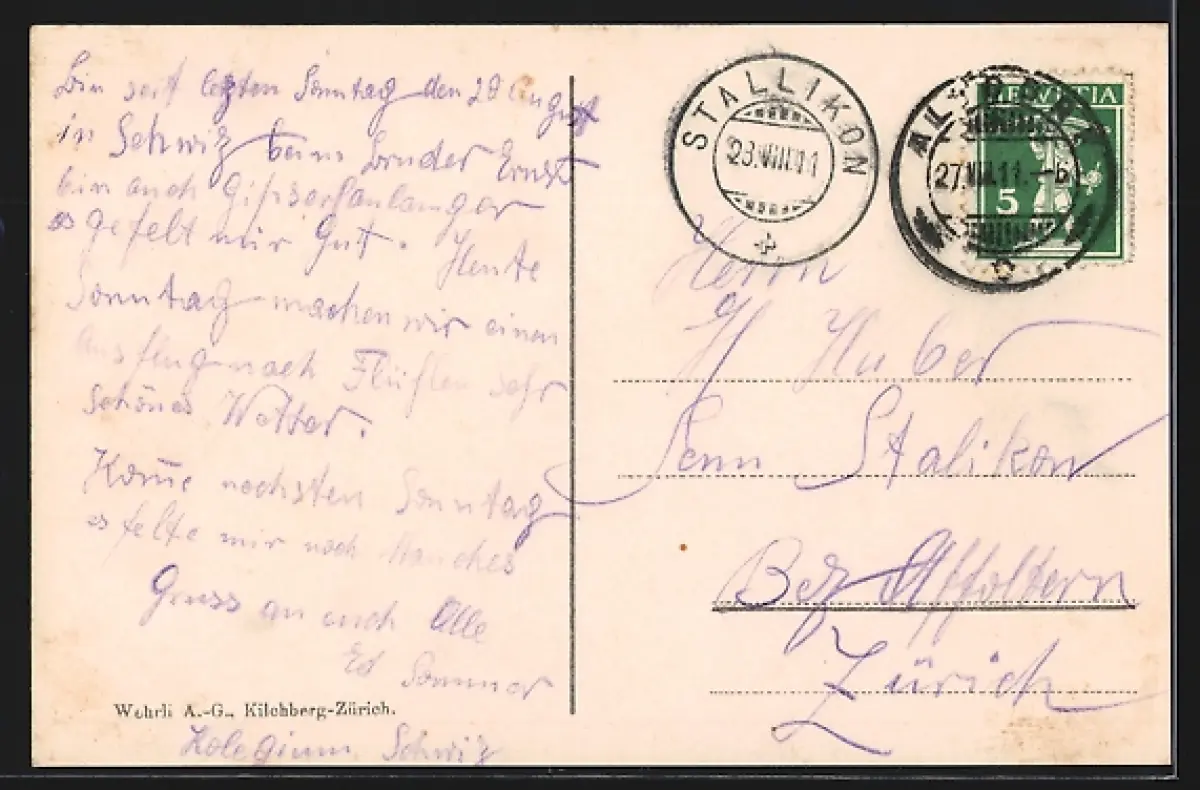 Bin seit letzten Sonntag den 20 August
in Schwiz beim Bruder Ernst
bin auch Gipserhanlanger
es gefelt mir Gut. Heute
Sonntag machen wir einen
Ausflug nach Flüelen sehr
schönes Wetter.
Kom̄e nochsten Sonntag
es felte mir noch Manches
Gruss an euch Alle
Ed Sommer
Wehrli A.-G., Kilchberg-Zürich.
Kolegium Schwiz
STALLIKON
28.VIII.11
ALTDORF
27.VIII.11.-6
HELVETIA
5
Herrn
H Huber
Senn Stalikon
Bez Affoltern
Zürich